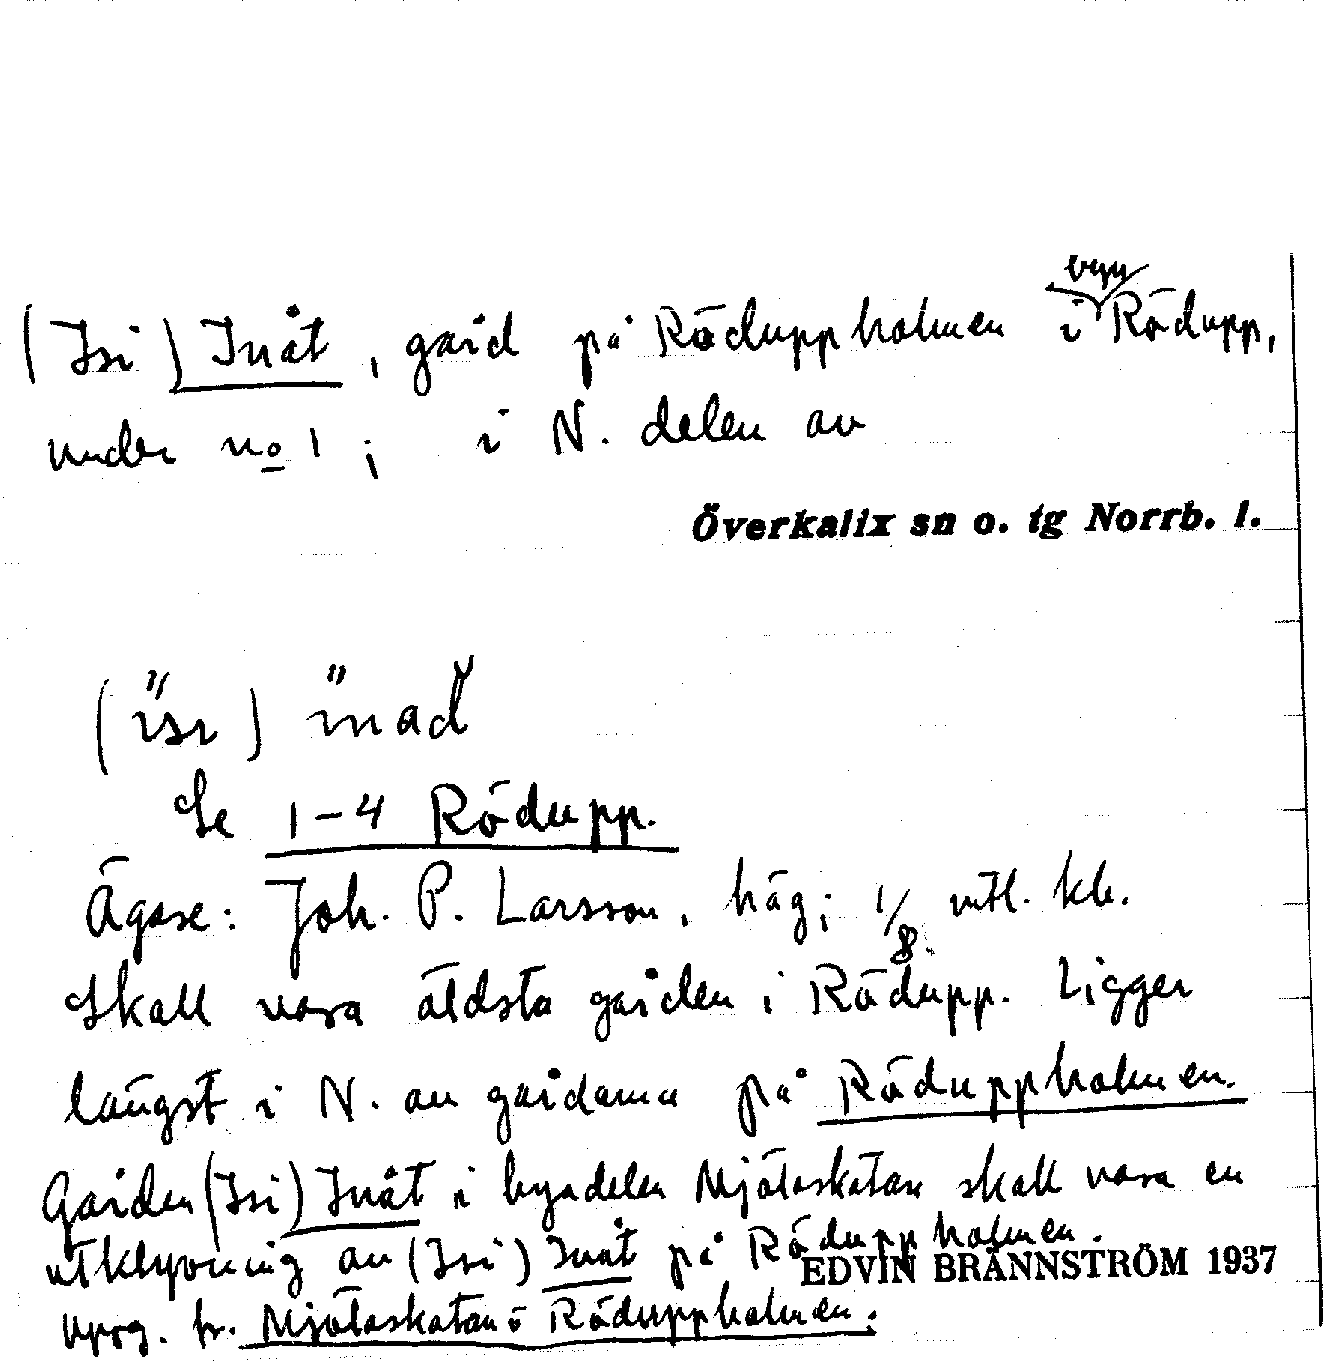 byn
(Isi) Inåt, gård på Räduppholmen i Rödupp,
under no 1; i N. delen av
Överkalix sn o. tg Norrb. l.
(ı̋sı) ı̋nad̆
Se 1-4 Rödupp.
Ägare: Joh. P. Larsson, häg; 1/8 mtl. kr.
Skall vara äldsta gården i Rödupp. Ligger
längst i N. av gårdarna på Röduppholmen.
Gården (Isi) Inåt i byadelen Mjölaskatan skall vara en
utklyvning av (Isi) Inåt på Röduppholmen.
EDVIN BRÄNNSTRÖM 1937
Uppg. fr. Mjölaskatan o Röduppholmen.